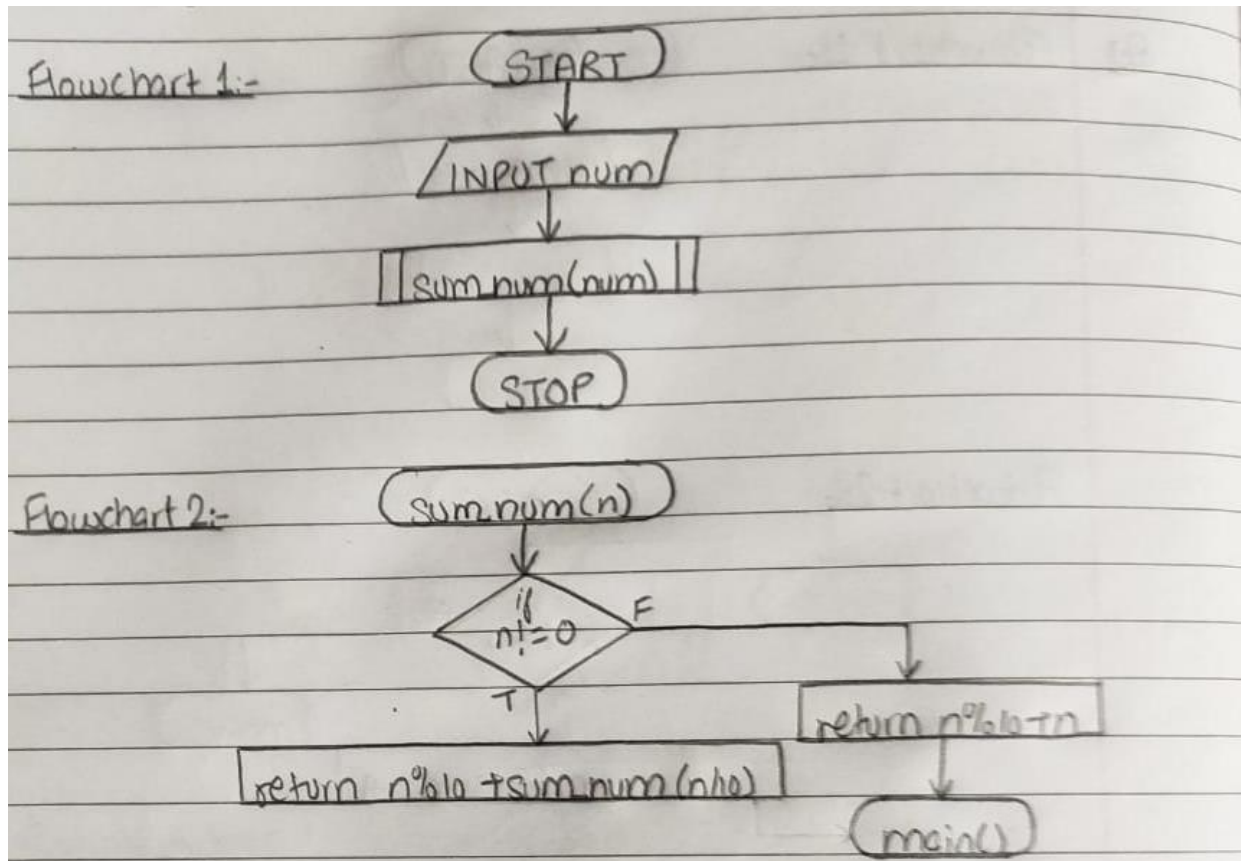 Flowchart 1:-
START
INPUT num
sum_num(num)
STOP
Flowchart 2:-
sum_num(n)
if
n!=0
F
T
return n%10+n
return n%10+sum_num(n/10)
main()